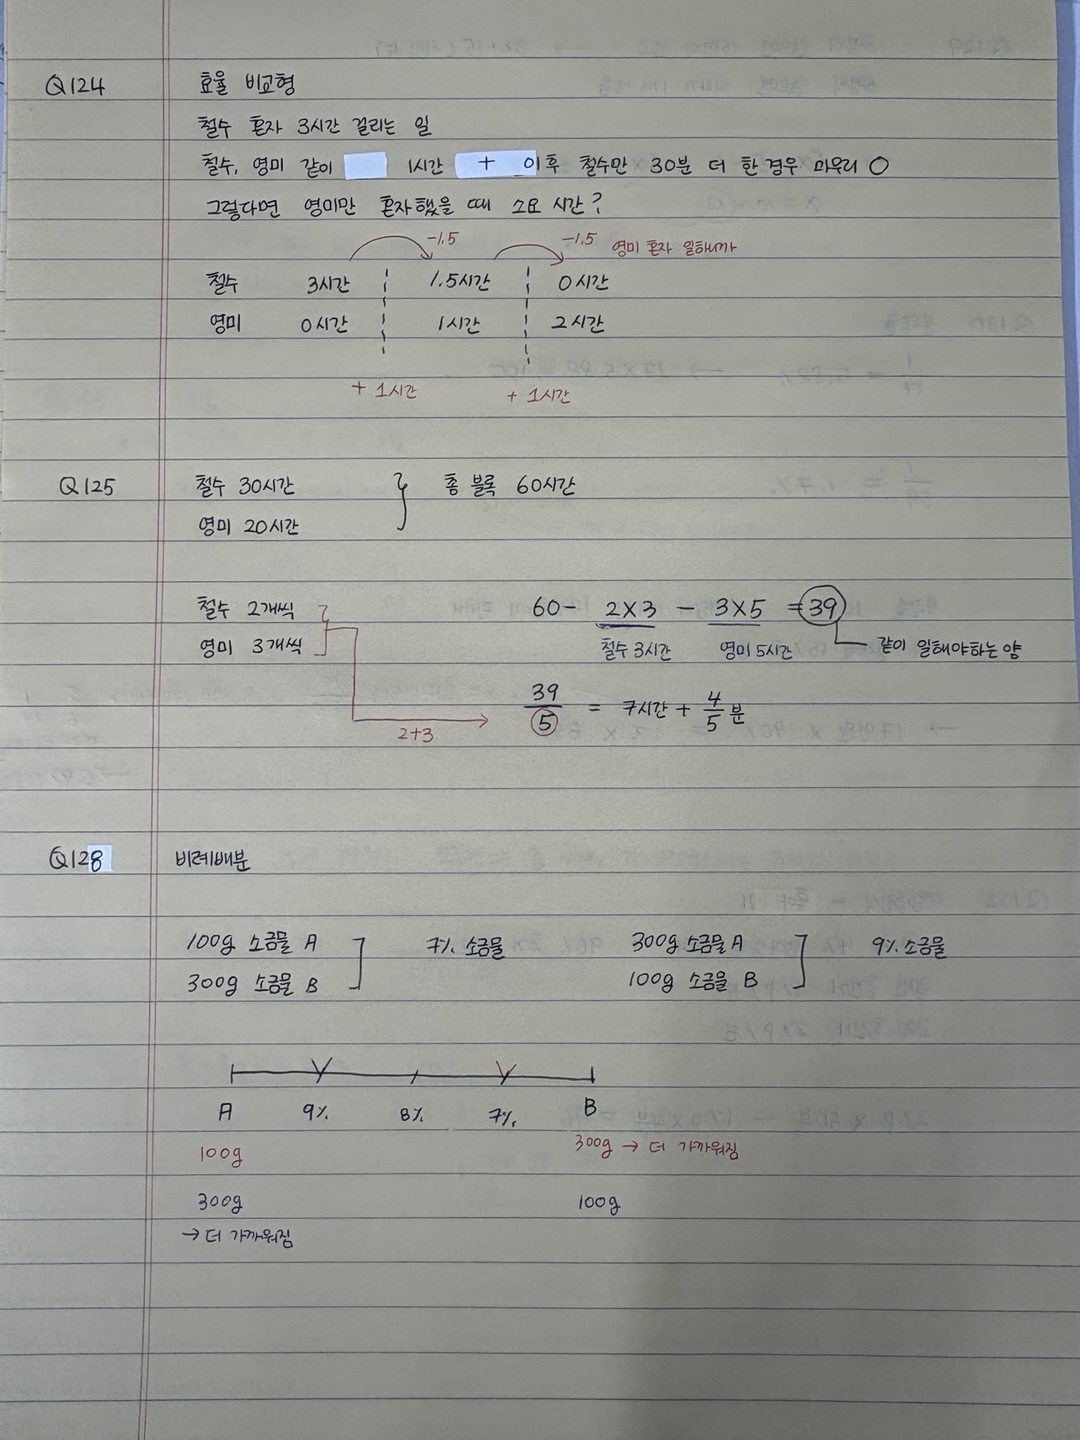 Q124 효율 비교형
철수 혼자 3시간 걸리는 일
철수, 영미 같이 1시간 + 이후 철수만 30분 더 한 경우 마무리 O
그렇다면 영미만 혼자했을 때 소요 시간?
-1.5 -1.5 영미 혼자 일하니까
철수 3시간 1.5시간 0시간
영미 0시간 1시간 2시간
+ 1시간 + 1시간
Q125 철수 30시간 총 블록 60시간
영미 20시간
철수 2개씩 60 - 2×3 - 3×5 = 39
영미 3개씩 철수 3시간 영미 5시간 같이 일해야하는 양
39/5 = 7시간 + 4/5분
2+3
Q128 비례배분
100g 소금물 A 7% 소금물 300g 소금물 A 9% 소금물
300g 소금물 B 100g 소금물 B
A 9% 8% 7% B
100g 300g → 더 가까워짐
300g 100g
→ 더 가까워짐